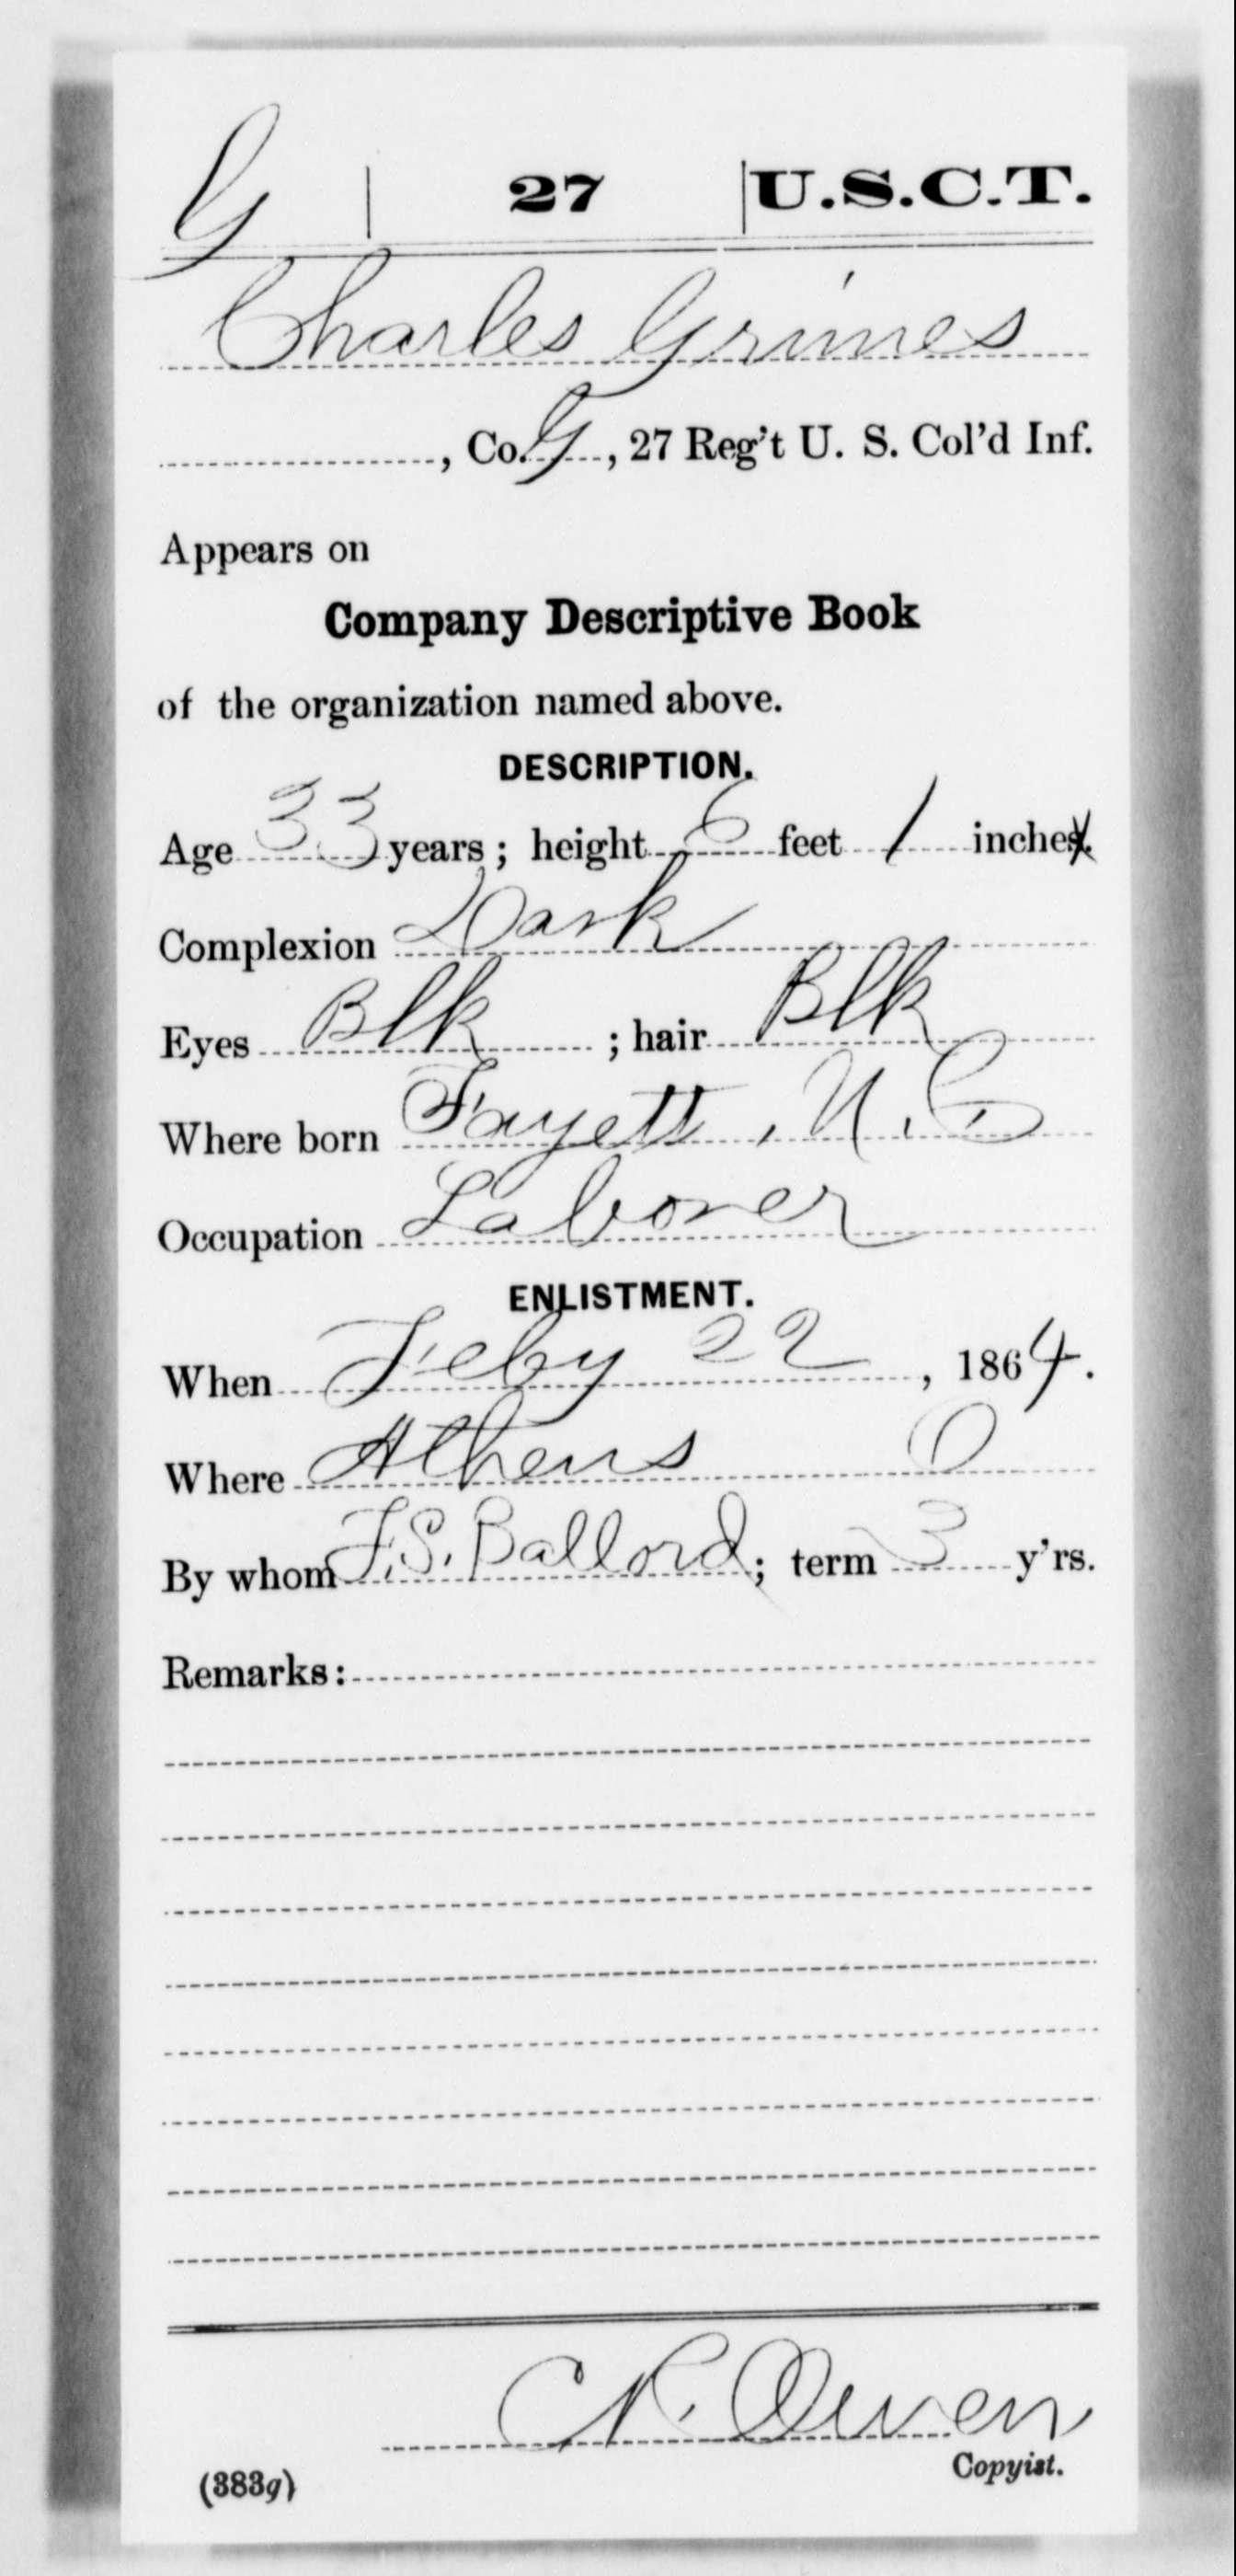 G | 27 | U.S.C.T.
Charles Grimes
, Co. G, 27 Reg't U. S. Col'd Inf.
Appears on
Company Descriptive Book
of the organization named above.
DESCRIPTION.
Age 33 years; height 6 feet 1 inches.
Complexion Dark
Eyes Blk ; hair Blk
Where born Fayett, N. C
Occupation Laborer
ENLISTMENT.
When Feby 22, 1864.
Where Athens O
By whom F.S. Ballord; term 3 y'rs.
Remarks:
Owen
Copyist.
(383g)